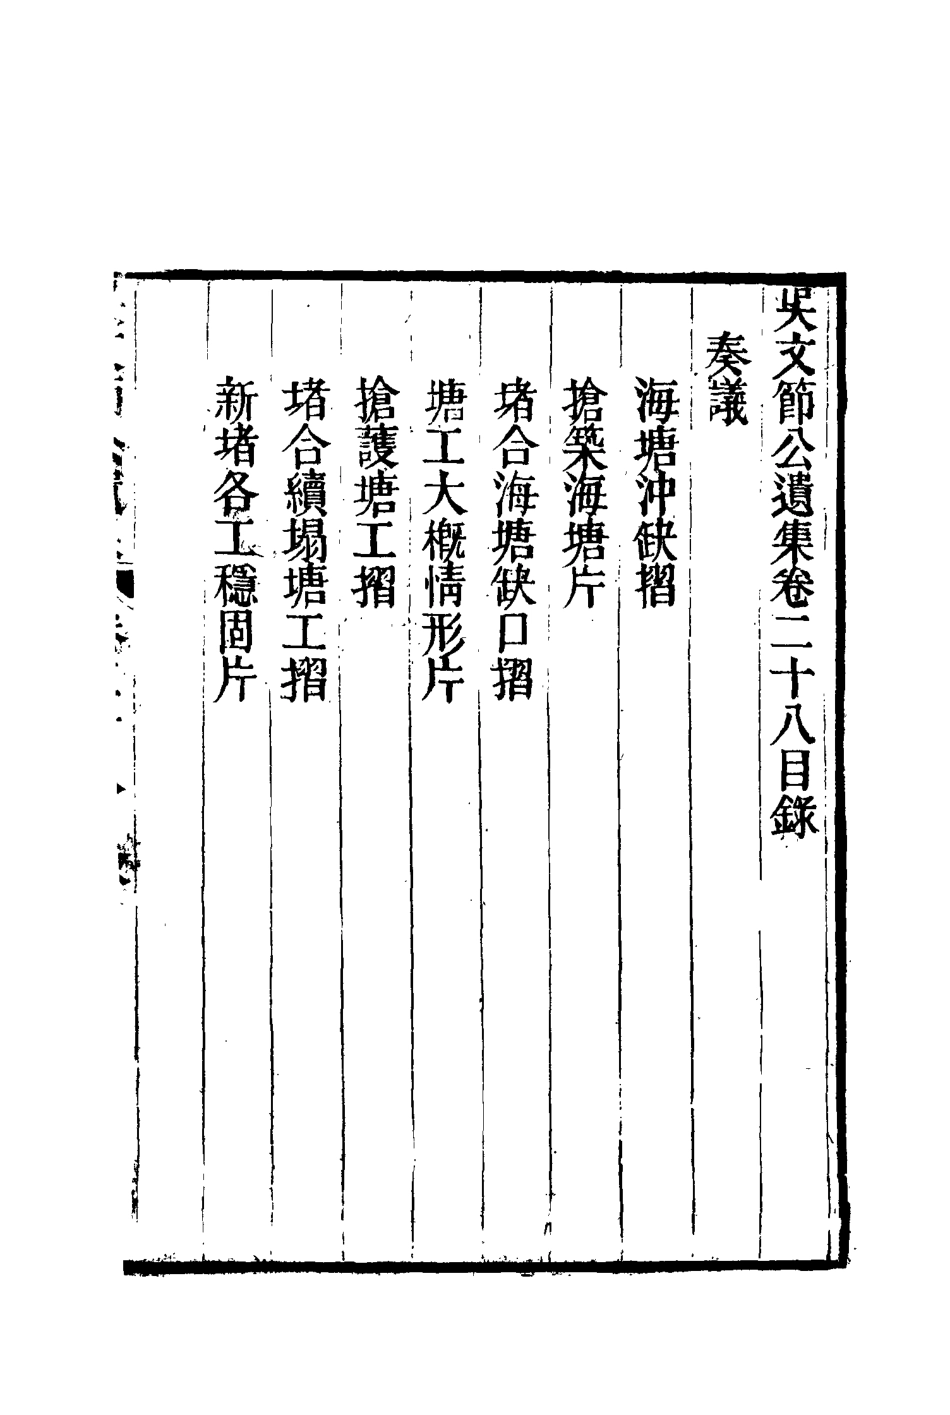 吳文節公遺集卷二十八目錄
奏議
海塘沖缺摺
搶築海塘片
堵合海塘缺口摺
塘工大概情形片
搶護塘工摺
堵合續塌塘工摺
新堵各工穩固片